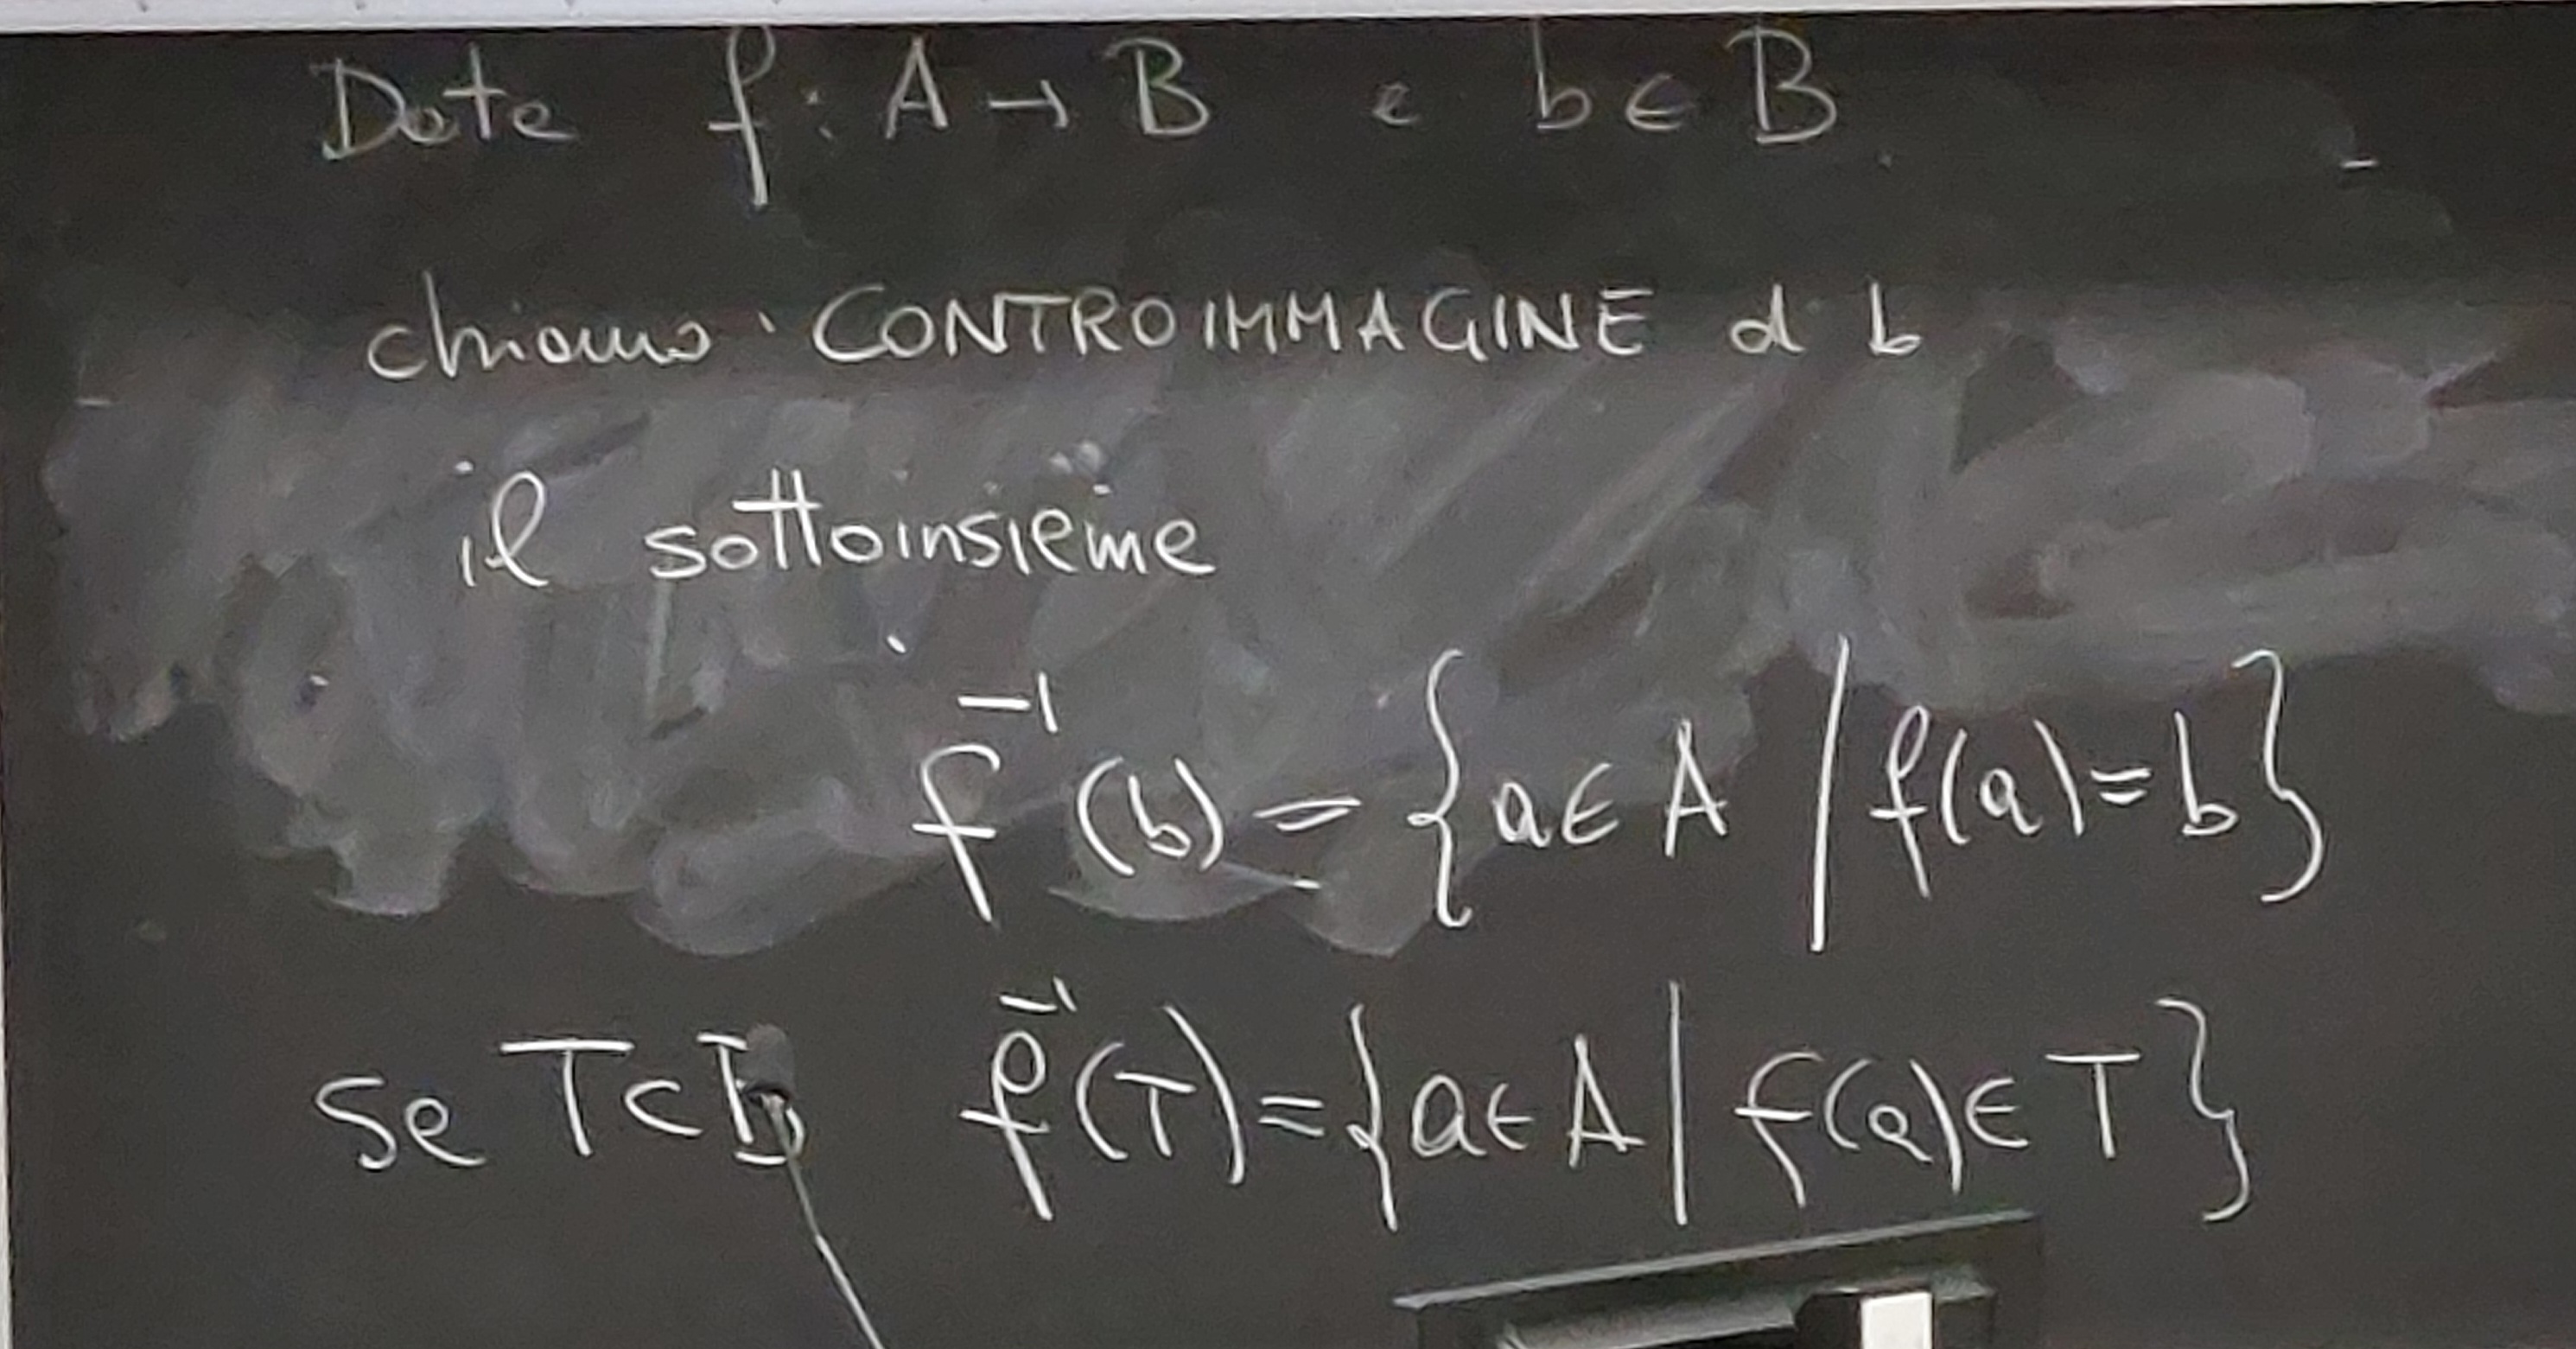 Date f: A → B e b ∈ B
chiamo CONTROIMMAGINE di b
il sottoinsieme
f⁻¹(b) = {a ∈ A | f(a) = b}
se T ⊂ B f⁻¹(T) = {a ∈ A | f(a) ∈ T}